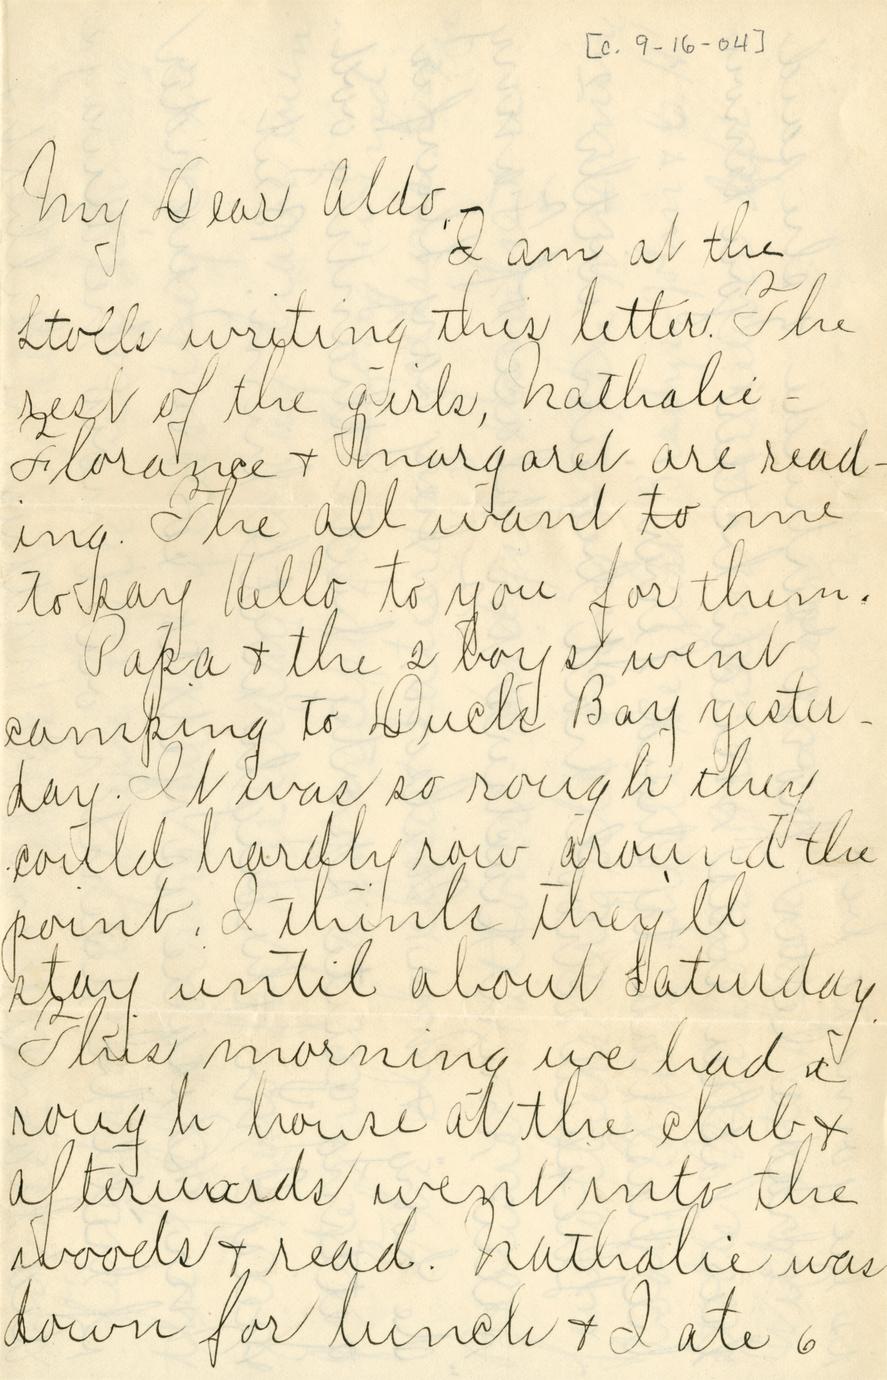 [c. 9-16-04]
My Dear Aldo,-
I am at the
Stolls writing this letter. The
rest of the girls, Nathalie -
Florance + Margaret are read-
ing. The all want to me
to say Hello to you for them.
Papa + the 2 boys went
camping to Duck Bay yester-
day. It was so rough they
could hardly row around the
point. I think they'll
stay until about Saturday.
This morning we had a
rough house at the club +
afterwards went into the
woods + read. Nathalie was
down for lunch + I ate 6